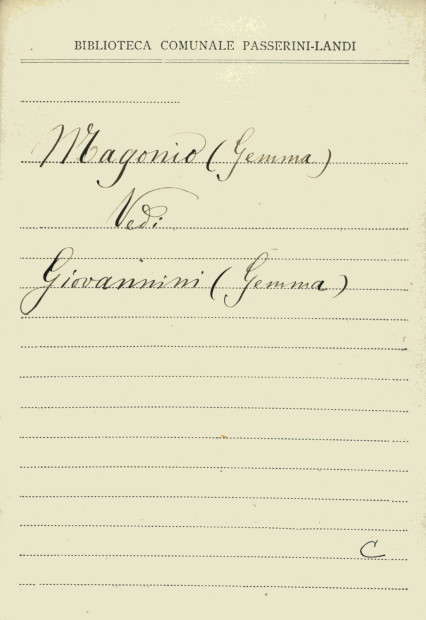 BIBLIOTECA COMUNALE PASSERINI-LANDI
Magonio (Gemma)
Vedi
Giovannini (Gemma)
C